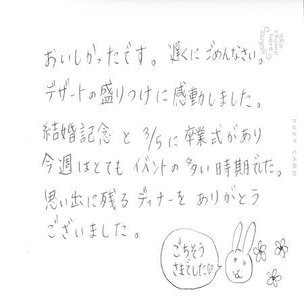 おいしかったです。遅くにごめんなさい。
デザートの盛りつけに感動しました。
結婚記念と3/5に卒業式があり
今週はとてもイベントの多い時期でした。
思い出に残るディナーをありがとう
ございました。
ごちそう
さまでした♡